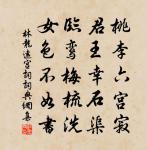 桃李六宮寂
君王幸石渠
臨鸞梅梳洗
女色不如書
林龍遠宮詞詞典網集